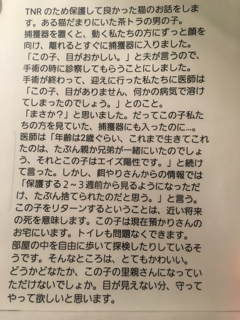 TNRのため保護して良かった猫のお話をします。
ある猫だまりにいた茶トラの男の子。
捕獲器を置くと、動く私たちの方にずっと顔を
向け、離れるとすぐに捕獲器に入りました。
「この子、目がおかしい。」と夫が言うので、
手術の時に診察してもらうことにしました。
手術が終わって、迎えに行った私たちに医師は
「この子、目がありません、何かの病気で溶け
てしまったのでしょう。」とのこと。
「まさか？」と思いました。だってこの子私た
ちの方を見ていた、捕獲器にも入ったのに…。
医師は「年齢は2歳ぐらい、これまで生きてこれ
たのは、たぶん親か兄弟が一緒にいたのでしょ
う、それとこの子はエイズ陽性です。」と続け
て言った。しかし、餌やりさんからの情報では
「保護する2～3週前から見るようになっただ
け、たぶん捨てられたのだと思う。」と言う。
この子をリターンするということは、近い将来
の死を意味します。この子は現在預かりさんの
お宅にいます。トイレも問題なくできます。
部屋の中を自由に歩いて探検したりしているそ
うです。そんなところは、とてもかわいい。
どうかどなたか、この子の里親さんになってい
ただけないでしょうか。目が見えない分、守って
やって欲しいと思います。